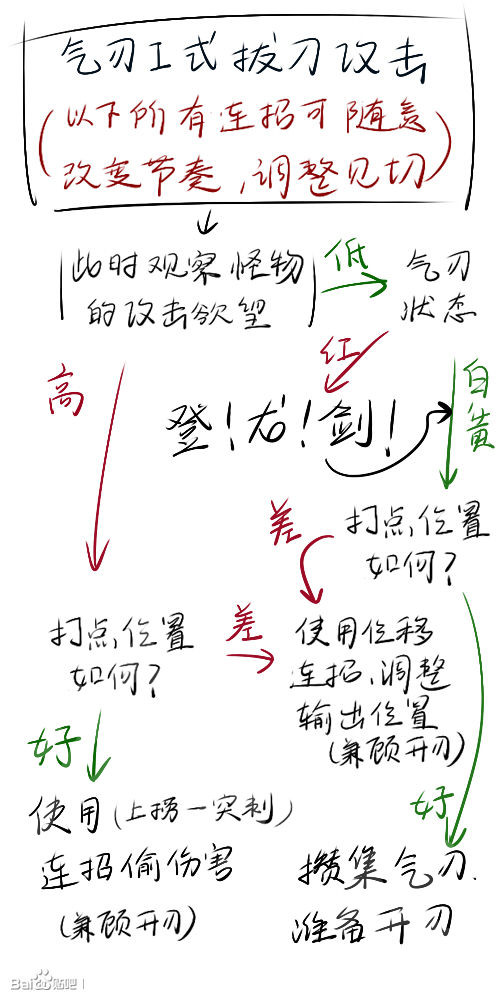 气刃I式拔刀攻击
(以下所有连招可随意
改变节奏,调整见切)
此时观察怪物
的攻击欲望
低
气刃
状态
高
红
白黄
登!龙!剑!
差
打点,位置
如何?
打点,位置
如何?
差
使用位移
连招,调整
输出位置
(兼顾开刃)
好
好
使用(上捞一突刺)
连招偷伤害
(兼顾开刃)
攒集气刃.
准备开刃
Bai贴吧